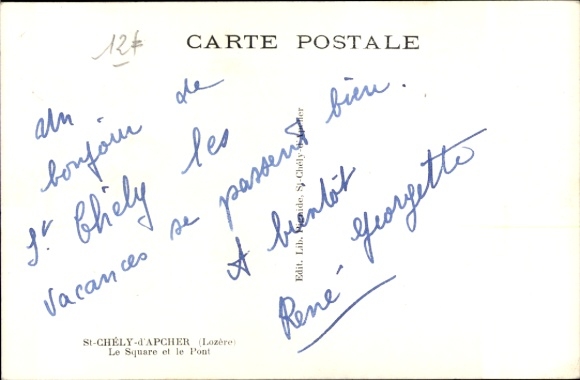 12 F
CARTE POSTALE
un bonjour de
St Chély les
vacances se passent bien.
A bientôt
René Georgette
St-CHÉLY-d'APCHER (Lozère)
Le Square et le Pont
Edit. Lib. St-Chély-d'Apcher